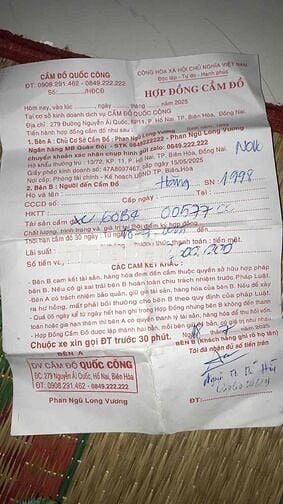 CẦM ĐỒ QUỐC CÔNG
ĐT: 0908.291.462 - 0849.222.222
Số: /HĐCĐ
CỘNG HÒA XÃ HỘI CHỦ NGHĨA VIỆT NAM
Độc lập - Tự do - Hạnh phúc
HỢP ĐỒNG CẦM ĐỒ
Hôm nay, vào lúc ngày tháng năm 2025
Tại cơ sở kinh doanh dịch vụ CẦM ĐỒ QUỐC CÔNG
Địa chỉ: 279 Đường Nguyễn Ái Quốc, P. Hố Nai, TP. Biên Hòa, Đồng Nai.
Tiến hành hợp đồng cầm đồ như sau:
Bên A: Chủ Cơ Sở Cầm Đồ: Phan Ngũ Long Vương
Ngân hàng MB Quân Đội - STK 0849222222 - Phan Ngũ Long Vương
chuyển khoản xong chụp hình gửi zalo: 0849.222.222
Hộ khẩu thường trú: KP. 11, P. Hố Nai, TP. Biên Hòa, Đồng Nai.
Giấy phép kinh doanh số: cấp ngày 15/05/2025
Nơi cấp: Phòng Tài chính - Kế hoạch UBND TP. Biên Hòa
2. Bên B: Người đến Cầm Đồ
Họ và tên: Hồng SN: 1998
CCCD số Cấp ngày Tại
HKTT:
Tài sản cầm 60B4 00577
Chất lượng, tình trạng và giá trị tại thời điểm ký hợp đồng
Thời hạn cầm đồ 30 ngày: Từ
Lãi suất: phương thức thanh toán: tiền mặt.
Số tiền
CÁC CAM KẾT KHÁC
- Bên B cam kết tài sản, hàng hóa đem đến cầm thuộc quyền sở hữu hợp pháp
của Bên B. Nếu có gì sai trái bên B hoàn toàn chịu trách nhiệm trước Pháp Luật.
- Bên A có trách nhiệm bảo quản, giữ gìn tài sản, hàng hóa của Bên B. Nếu để xảy
ra hư hỏng, mất phải bồi thường cho bên B theo quy định của pháp luật.
- Quá 05 ngày kể từ ngày hết hạn ghi trong Hợp Đồng nhưng bên B không đến thanh
toán hoặc gia hạn thêm thì bên A có quyền thanh lý tài sản, hàng hóa để thu hồi vốn.
Hợp Đồng Cầm Đồ được lập thành hai bản, mỗi bên giữ
Chuộc xe xin gọi ĐT trước 30 phút.
năm 2025
BÊN A
DV CẦM ĐỒ QUỐC CÔNG
ĐC: 279 Nguyễn Ái Quốc, Hố Nai, Biên Hòa
ĐT: 0908.291.462 - 0849.222.222
Phan Ngũ Long Vương
BÊN B (Khách hàng xin ghi rõ họ tên)
Tôi đã nhận đủ số tiền trên
ĐT: